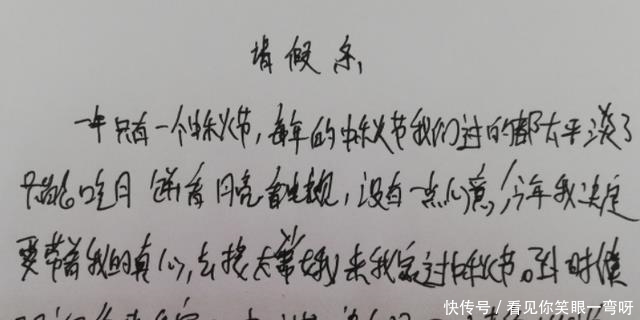 请假条
一年只有一个中秋节，每年的中秋节我们过的都太平淡了
只能吃月饼看月亮看电视，没有一点心意，今年我决定
要带着我的真心，去找大嫦娥来我家过中秋节。到时候
快传号／看见你笑眼一弯呀